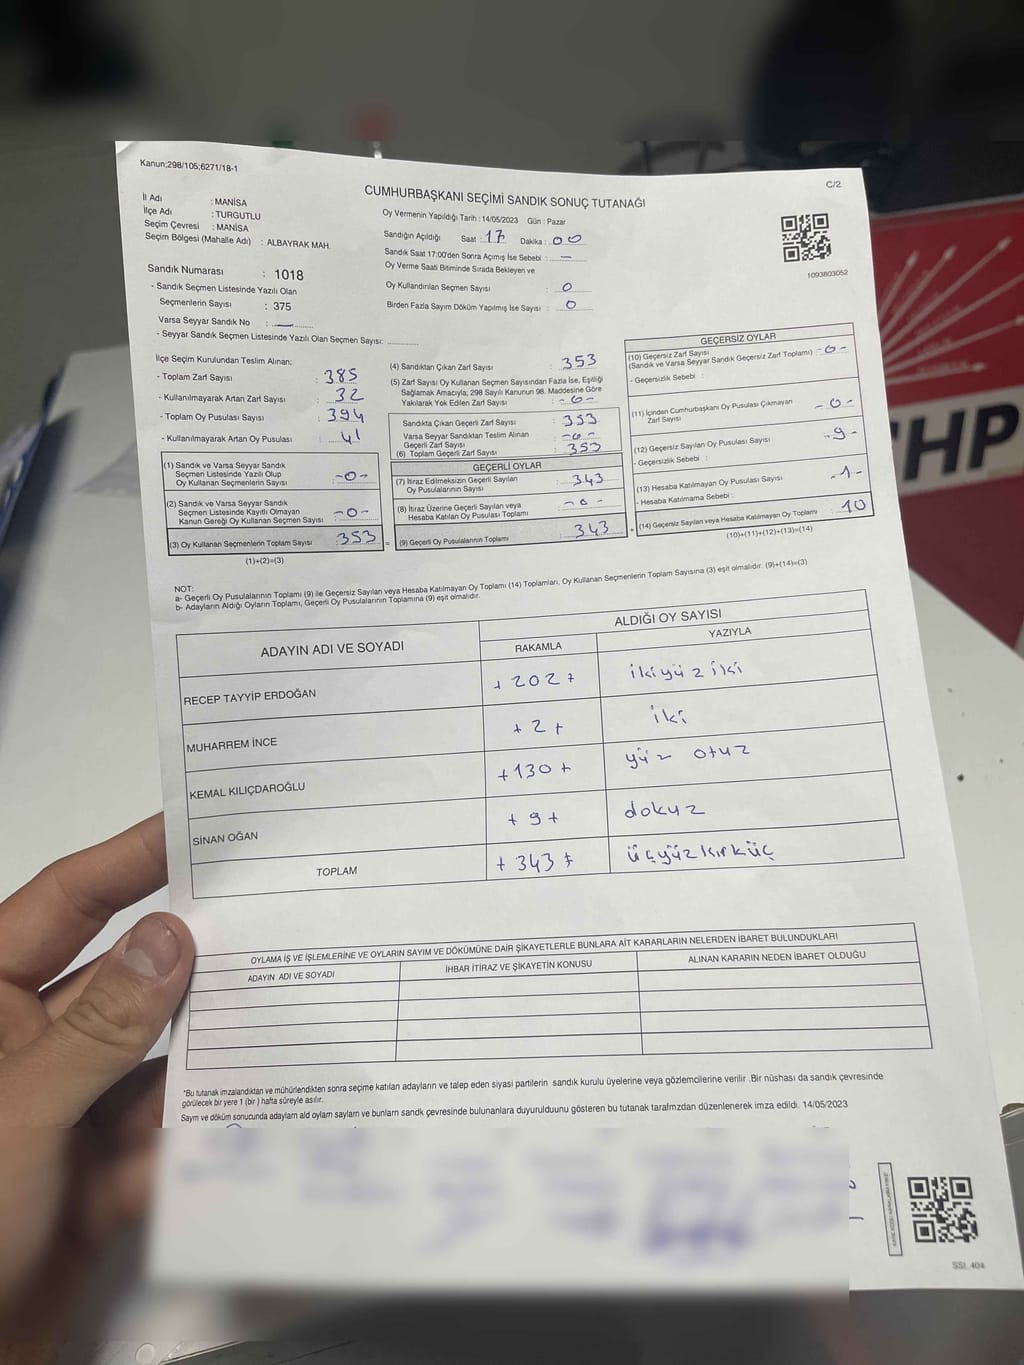 Kanun;298/105;6271/18-1
C/2
CUMHURBAŞKANI SEÇİMİ SANDIK SONUÇ TUTANAĞI
İl Adı : MANİSA
İlçe Adı : TURGUTLU
Seçim Çevresi : MANİSA
Seçim Bölgesi (Mahalle Adı) : ALBAYRAK MAH.
Sandık Numarası : 1018
- Sandık Seçmen Listesinde Yazılı Olan
Seçmenlerin Sayısı : 375
Varsa Seyyar Sandık No : —
- Seyyar Sandık Seçmen Listesinde Yazılı Olan Seçmen Sayısı: ..............
Oy Vermenin Yapıldığı Tarih : 14/05/2023 Gün : Pazar
Sandığın Açıldığı Saat : 17 Dakika : 00
Sandık Saat 17:00'den Sonra Açımış İse Sebebi : —
Oy Verme Saati Bitiminde Sırada Bekleyen ve
Oy Kullandırılan Seçmen Sayısı : 0
Birden Fazla Sayım Döküm Yapılmış İse Sayısı : 0
1093803052
İlçe Seçim Kurulundan Teslim Alınan;
- Toplam Zarf Sayısı : 385
- Kullanılmayarak Artan Zarf Sayısı : 32
- Toplam Oy Pusulası Sayısı : 394
- Kullanılmayarak Artan Oy Pusulası : 41
(1) Sandık ve Varsa Seyyar Sandık
Seçmen Listesinde Yazılı Olup
Oy Kullanan Seçmenlerin Sayısı : -0-
(2) Sandık ve Varsa Seyyar Sandık
Seçmen Listesinde Kayıtlı Olmayan
Kanun Gereği Oy Kullanan Seçmen Sayısı : -0-
(3) Oy Kullanan Seçmenlerin Toplam Sayısı : 353 =
(1)+(2)=(3)
(4) Sandıktan Çıkan Zarf Sayısı : 353
(5) Zarf Sayısı Oy Kullanan Seçmen Sayısından Fazla İse, Eşitliği
Sağlamak Amacıyla; 298 Sayılı Kanunun 98. Maddesine Göre
Yakılarak Yok Edilen Zarf Sayısı : -0-
Sandıkta Çıkan Geçerli Zarf Sayısı : 353
Varsa Seyyar Sandıktan Teslim Alınan
Geçerli Zarf Sayısı : -0-
(6) Toplam Geçerli Zarf Sayısı : 353
GEÇERLİ OYLAR
(7) İtiraz Edimeksizin Geçerli Sayılan
Oy Pusulalarının Sayısı : 343
(8) İtiraz Üzerine Geçerli Sayılan veya
Hesaba Katılan Oy Pusulası Toplamı : -0-
(9) Geçerli Oy Pusulalarının Toplamı : 343 +
GEÇERSİZ OYLAR
(10) Geçersiz Zarf Sayısı
(Sandık ve Varsa Seyyar Sandık Geçersiz Zarf Toplamı) : -0-
- Geçersizlik Sebebi :
(11) İçinden Cumhurbaşkanı Oy Pusulası Çıkmayan
Zarf Sayısı : -0-
(12) Geçersiz Sayılan Oy Pusulası Sayısı : -9-
- Geçersizlik Sebebi :
(13) Hesaba Katılmayan Oy Pusulası Sayısı : -1-
- Hesaba Katılmama Sebebi :
(14) Geçersiz Sayılan veya Hesaba Katılmayan Oy Toplamı : 10
(10)+(11)+(12)+(13)=(14)
HP
NOT:
a- Geçerli Oy Pusulalarının Toplamı (9) ile Geçersiz Sayılan veya Hesaba Katılmayan Oy Toplamı (14) Toplamları, Oy Kullanan Seçmenlerin Toplam Sayısına (3) eşit olmalıdır. (9)+(14)=(3)
b- Adayların Aldığı Oyların Toplamı, Geçerli Oy Pusulalarının Toplamına (9) eşit olmalıdır.
ADAYIN ADI VE SOYADI
ALDIĞI OY SAYISI
RAKAMLA YAZIYLA
RECEP TAYYİP ERDOĞAN + 202 + ikiyüz iki
MUHARREM İNCE + 2 + iki
KEMAL KILIÇDAROĞLU + 130 + yüz otuz
SİNAN OĞAN + 9 + dokuz
TOPLAM + 343 + üçyüzkırküç
OYLAMA İŞ VE İŞLEMLERİNE VE OYLARIN SAYIM VE DÖKÜMÜNE DAİR ŞİKAYETLERLE BUNLARA AİT KARARLARIN NELERDEN İBARET BULUNDUKLARI
ADAYIN ADI VE SOYADI İHBAR İTİRAZ VE ŞİKAYETİN KONUSU ALINAN KARARIN NEDEN İBARET OLDUĞU
*Bu tutanak imzalandıktan ve mühürlendikten sonra seçime katılan adayların ve talep eden siyasi partilerin sandık kurulu üyelerine veya gözlemcilerine verilir .Bir nüshası da sandık çevresinde
görülecek bir yere 1 (bir ) hafta süreyle asılır.
Sayım ve döküm sonucunda adayların aldı oyların sayıların ve bunların sandk çevresinde bulunanlara duyurulduunu gösteren bu tutanak tarafmzdan düzenlenerek imza edildi. 14/05/2023
SSI_404